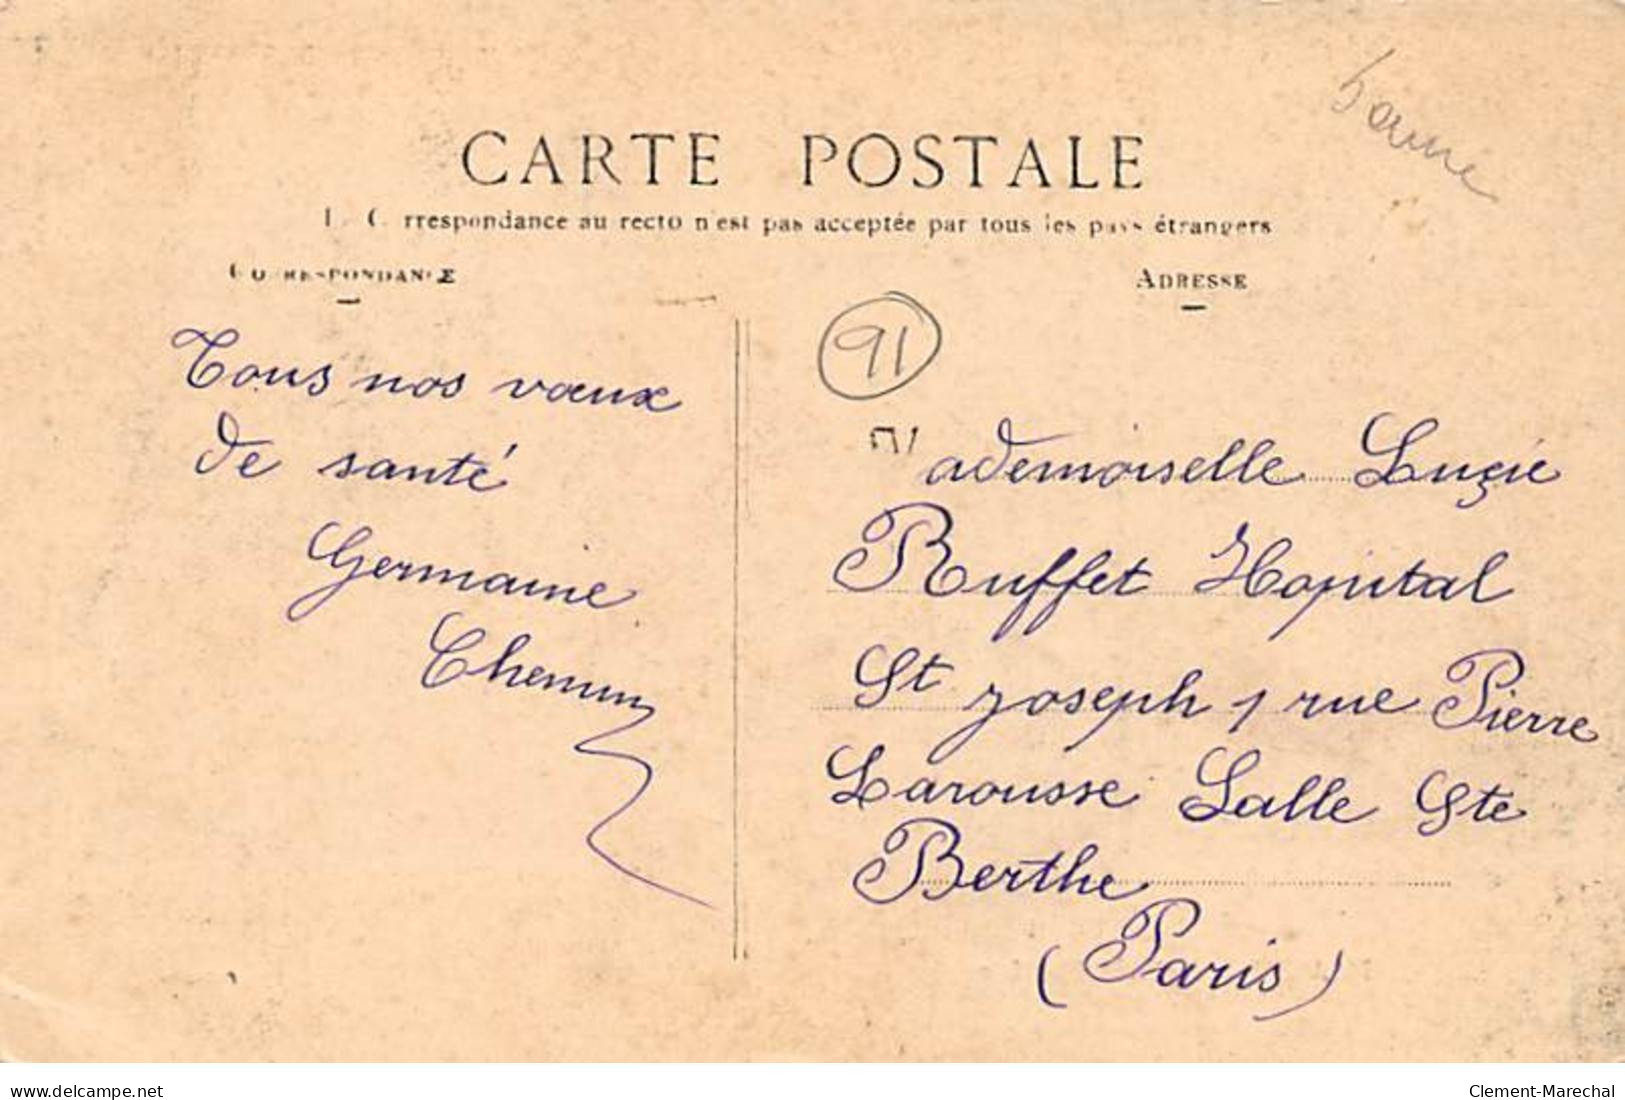 CARTE POSTALE
La Correspondance au recto n'est pas acceptée par tous les pays étrangers
CORRESPONDANCE
ADRESSE
91
Tous nos vœux
de santé
Germaine
Chemin
Mademoiselle Luçie
Ruffet Hopital
St Joseph 1 rue Pierre
Larousse Salle Ste
Berthe
(Paris)
www.delcampe.net
Clement-Marechal